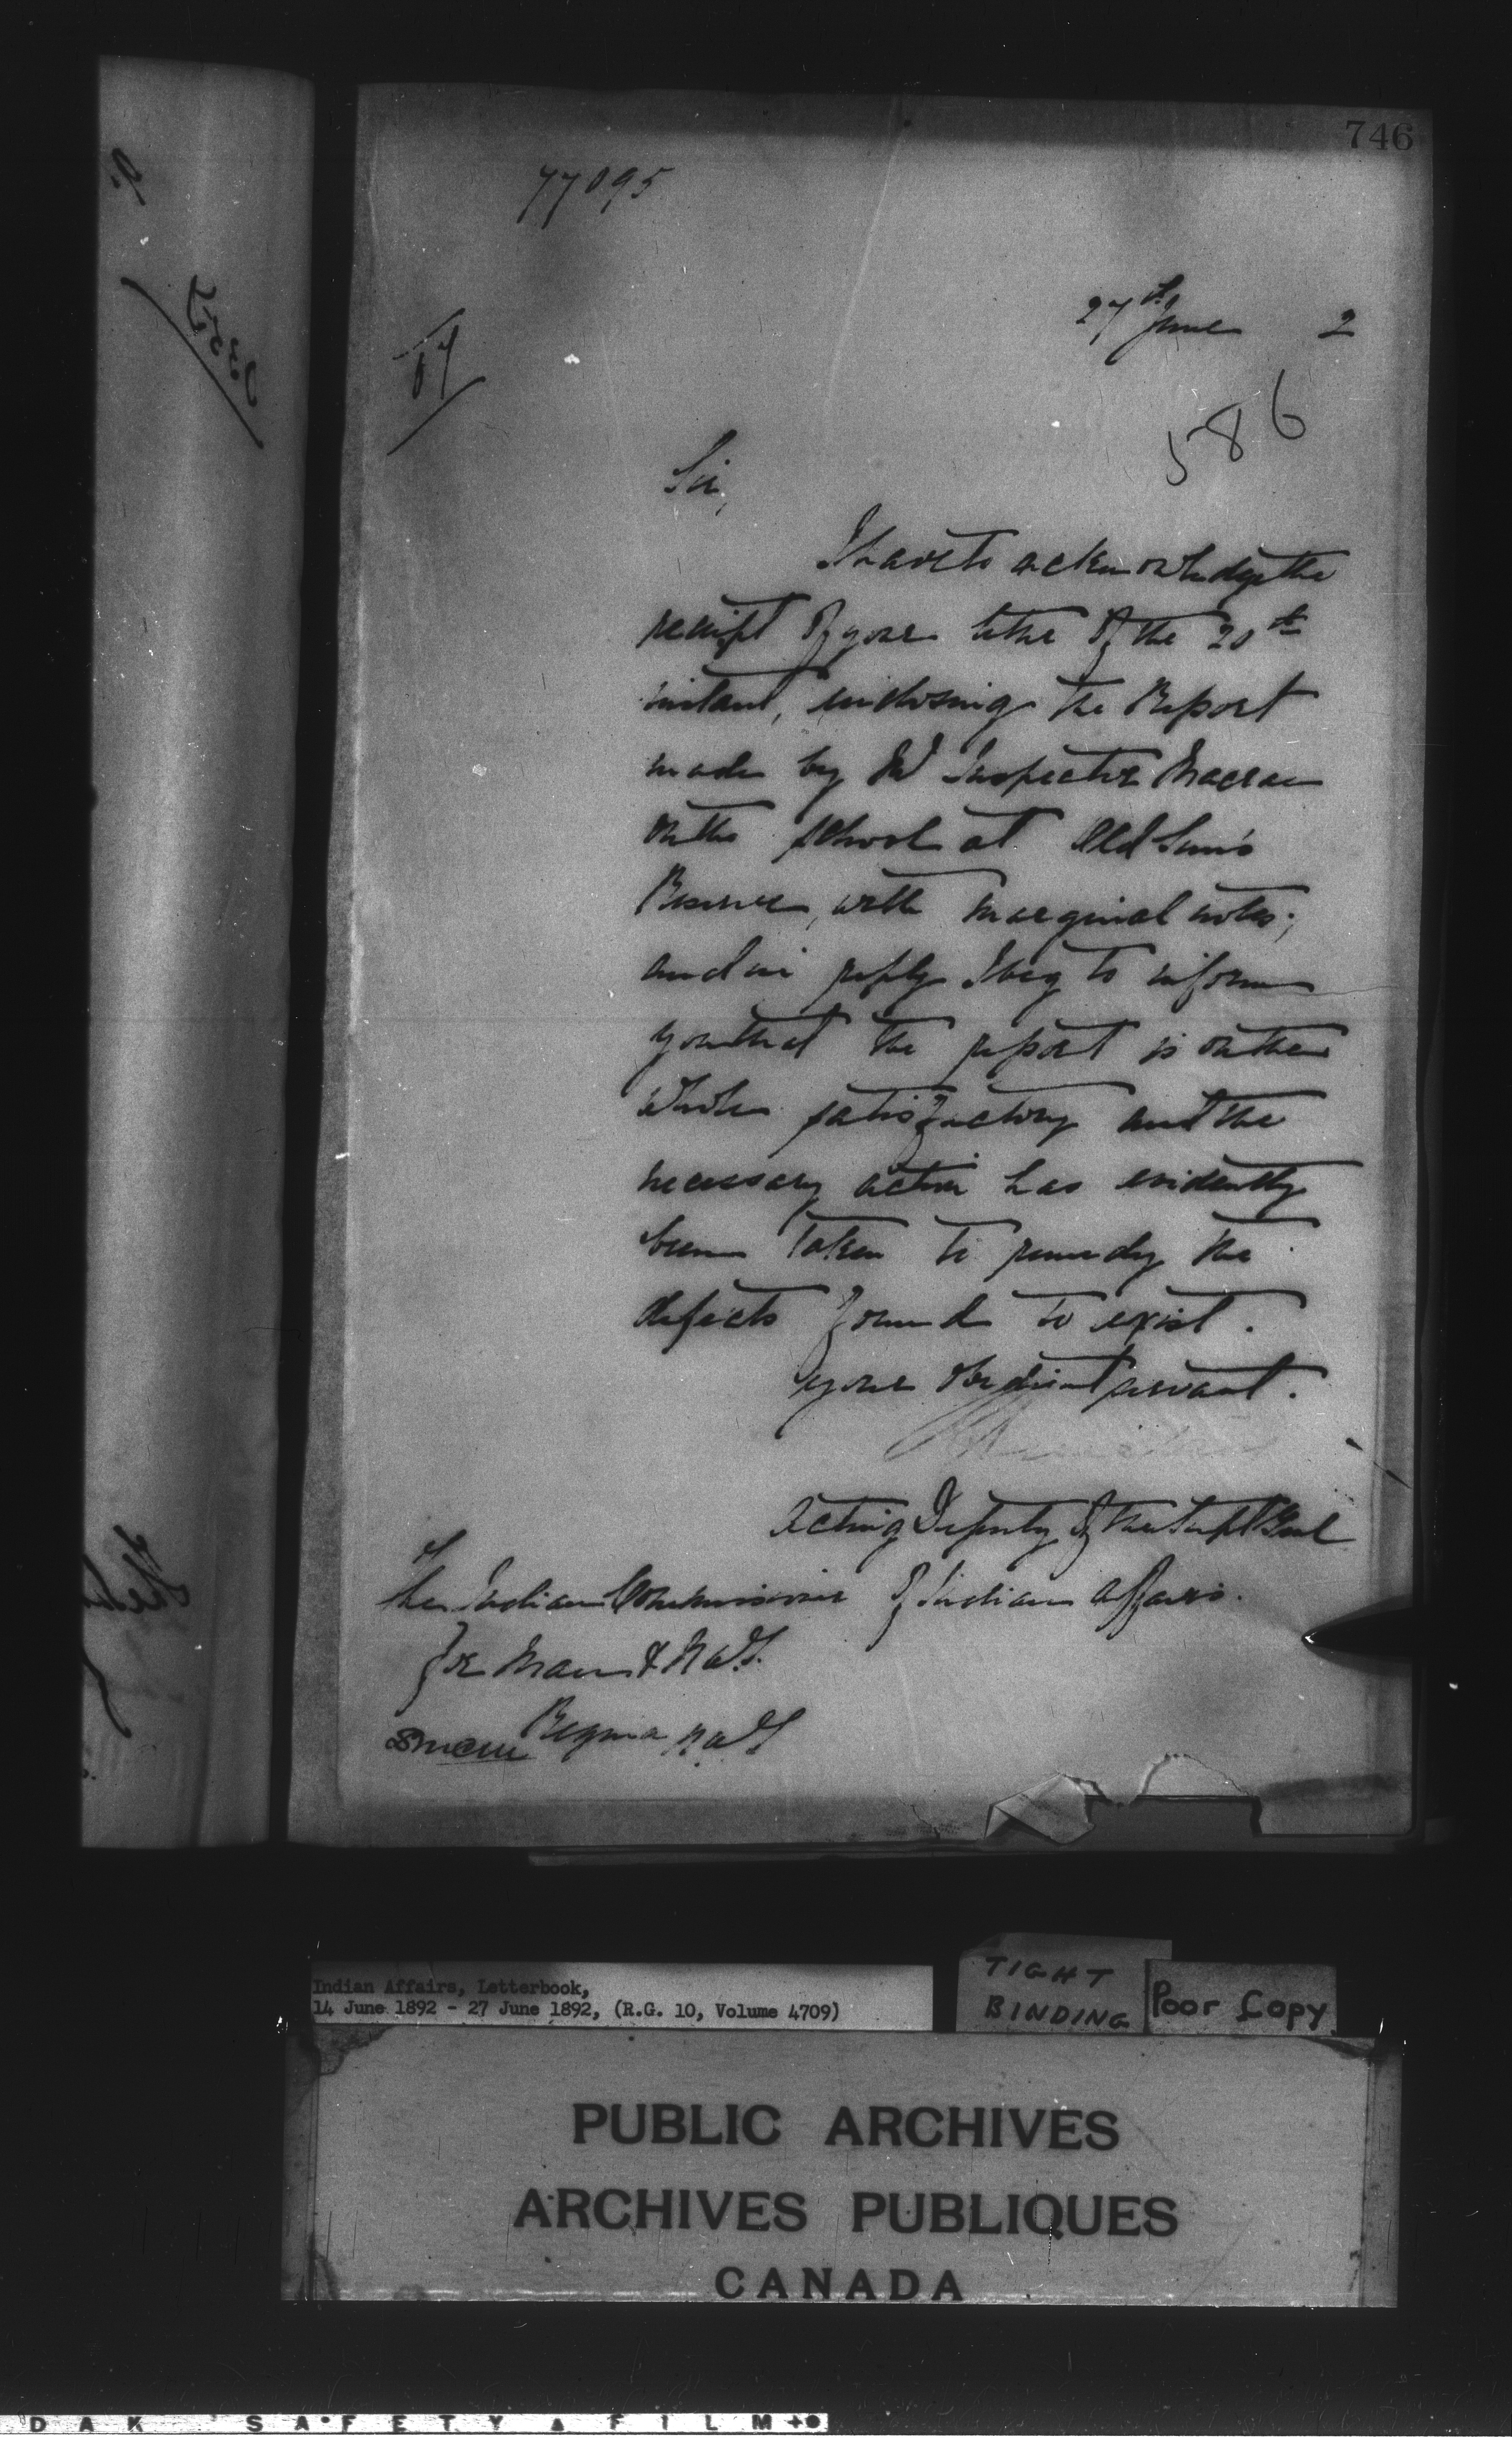 746
77095
27th June 2
586
Sir,
I have to acknowledge the
receipt of your letter of the 20th
instant, enclosing the Report
made by Mr Inspector Macrae
on the school at Old Sun's
Reserve, with marginal notes;
and in reply I beg to inform
you that the report is on the
whole satisfactory and the
necessary action has evidently
been taken to remedy the
defects found to exist.
Your obedient servant.
Acting Deputy of the Supt Genl
of Indian Affairs.
The Indian Commissioner
for Man & N.W.T.
Regina N.W.T
Indian Affairs, Letterbook,
14 June 1892 - 27 June 1892, (R.G. 10, Volume 4709)
TIGHT
BINDING
Poor Copy
PUBLIC ARCHIVES
ARCHIVES PUBLIQUES
CANADA
DAK SAFETY FILM